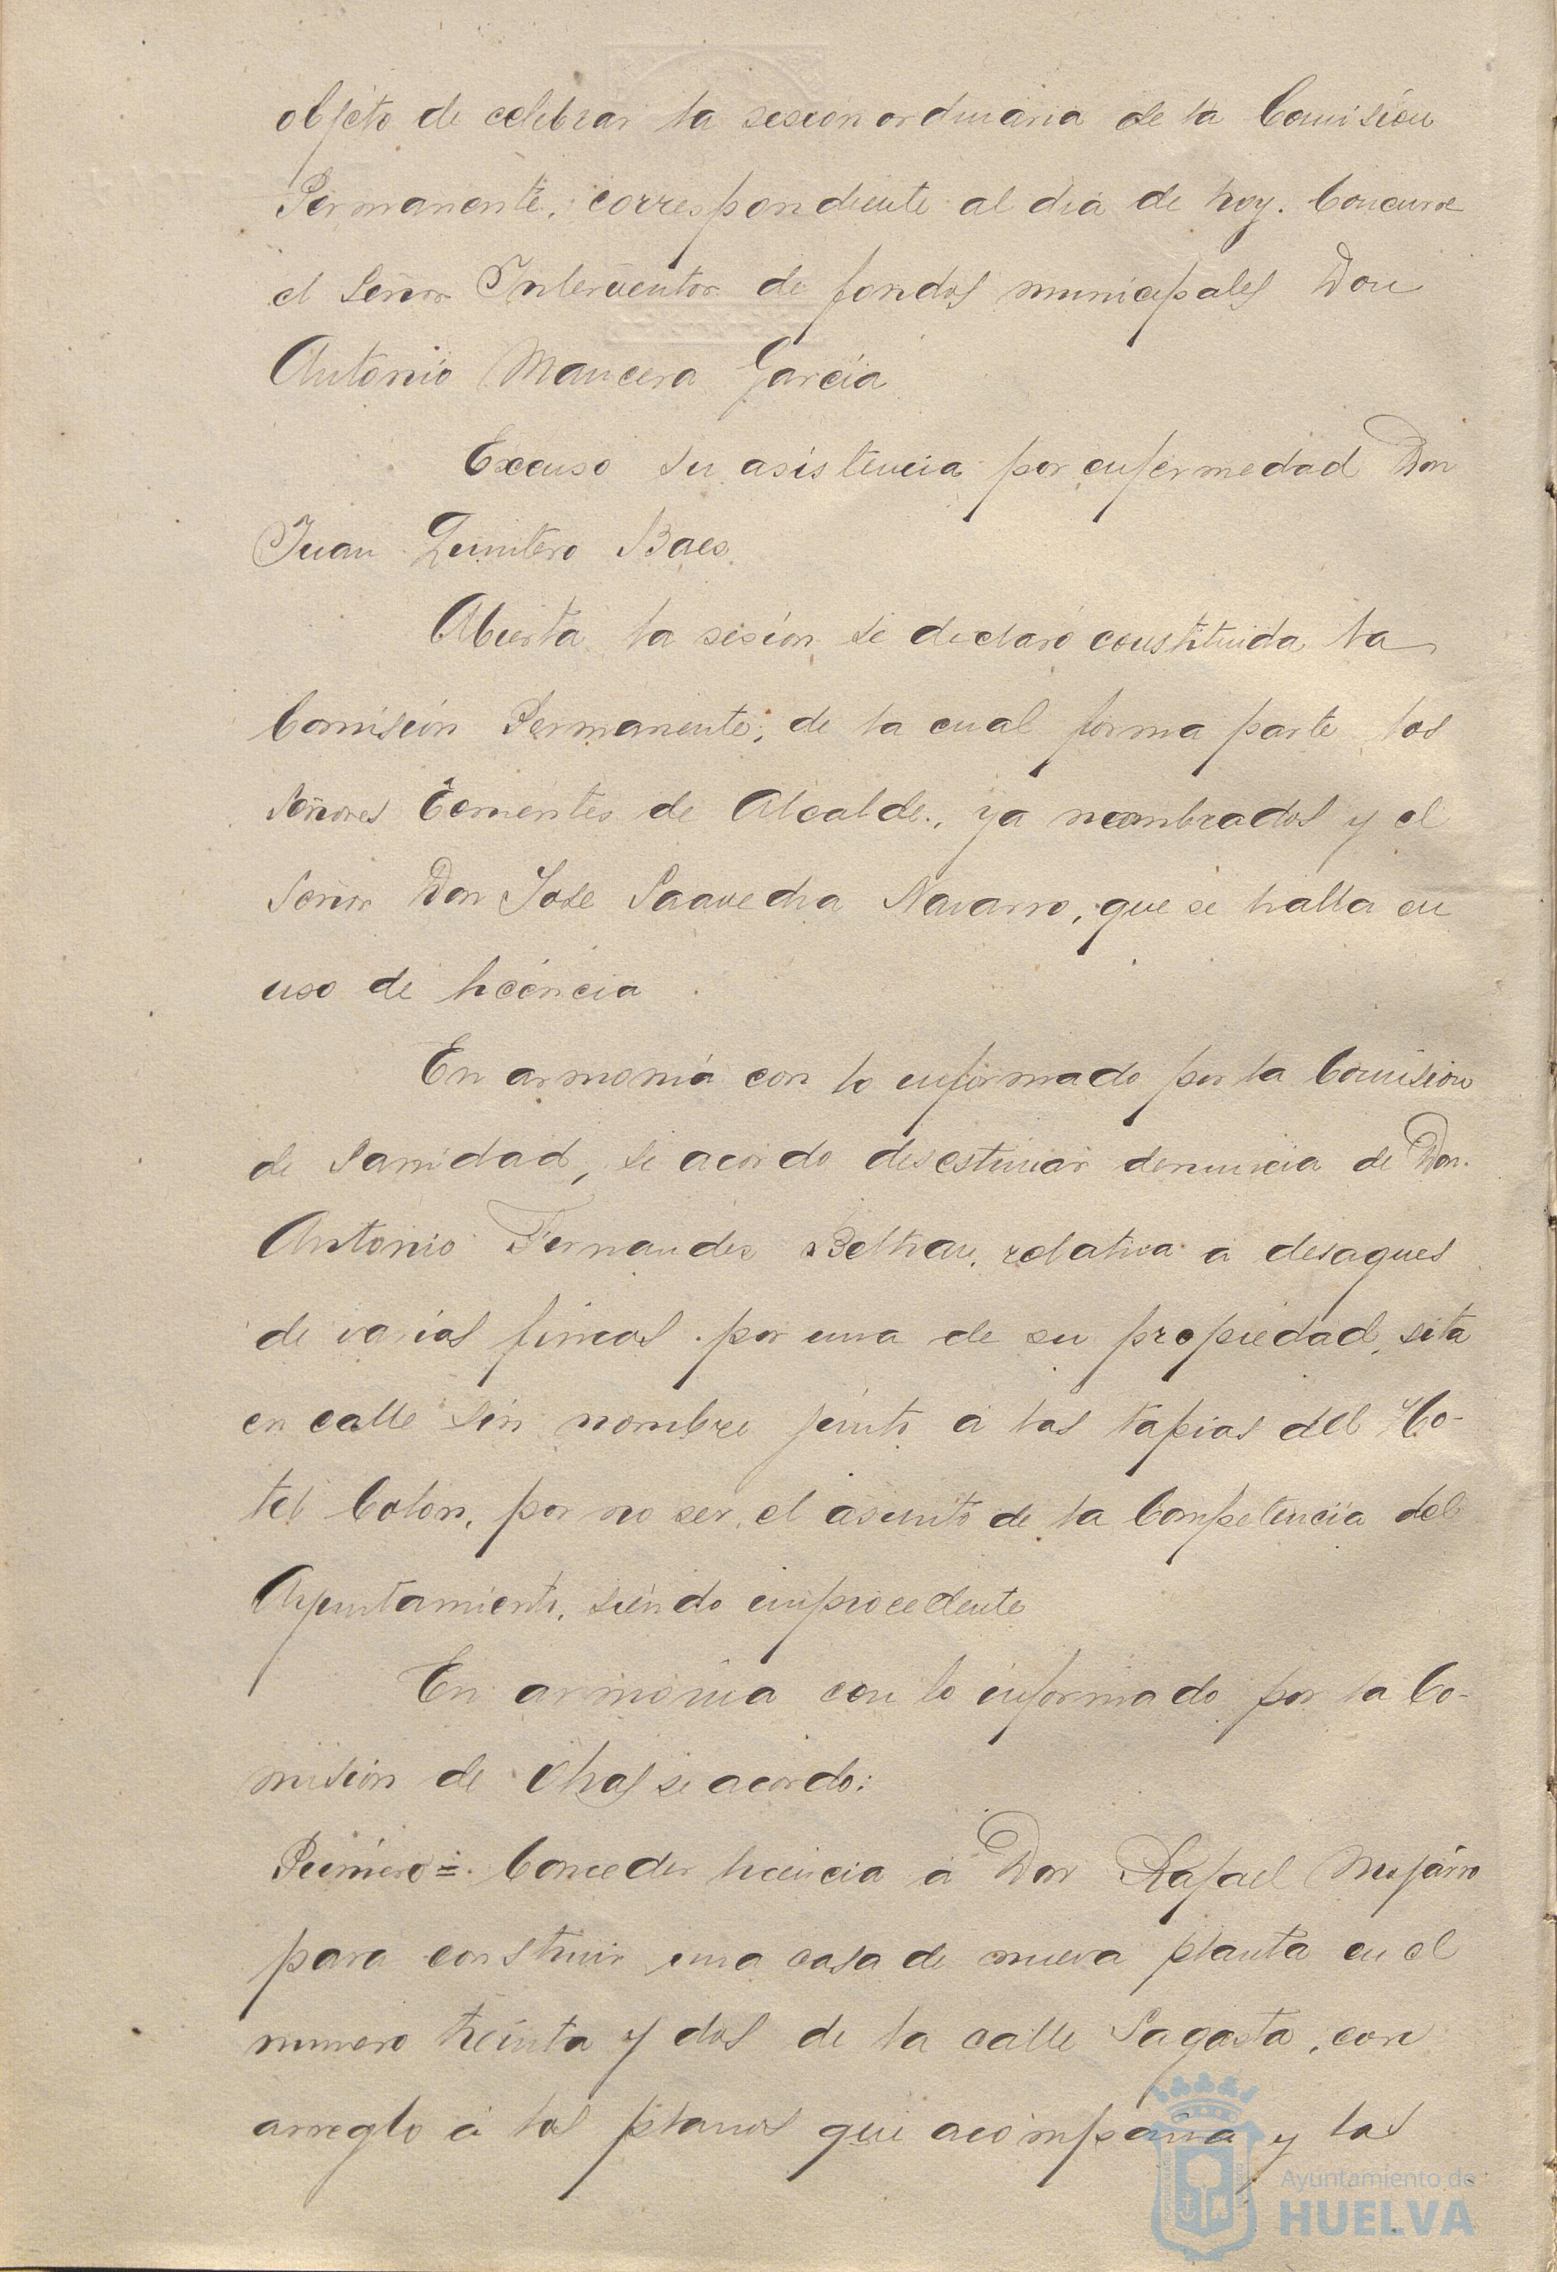 objeto de celebrar la sesion ordinaria de la Comisión
Permanente, correspondiente al dia de hoy. Concurre
el Señor Interventor de fondos municipales Don
Antonio Mancera García
Excuso su asistencia por enfermedad Don
Juan Quintero Baes.
Abierta la sesión se declaró constituida la
Comisión Permanente, de la cual forma parte los
Señores Tenientes de Alcalde, ya nombrados y el
Señor Don Jose Saavedra Navarro, que se halla en
uso de licencia
En armonia con lo informado por la Comision
de Sanidad, se acordo desestimar denuncia de Don.
Antonio Fernandez Beltran, relativa a desagues
de varias fincas por una de su propiedad, sita
en calle sin nombre junto a las tapias del Ho-
tel Colon, por no ser el asunto de la Competencia del
Ayuntamiento, siendo improcedente
En armonia con lo informado por la Co-
misión de Obras se acordo:
Primero = Conceder licencia a Don Rafael Mojarro
para construir una casa de nueva planta en el
numero treinta y dos de la calle Sagasta, con
arreglo a los planos que acompaña y las
Ayuntamiento de
HUELVA